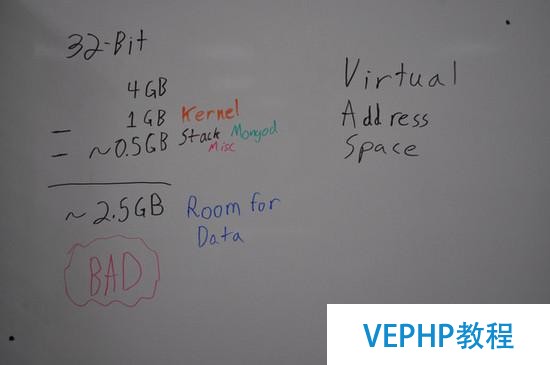 32-Bit
4GB
- 1GB Kernel
- ~0.5GB Stack Mongod
Misc
~2.5GB Room for
Data
BAD
Virtual
Address
Space
VEPHP教程